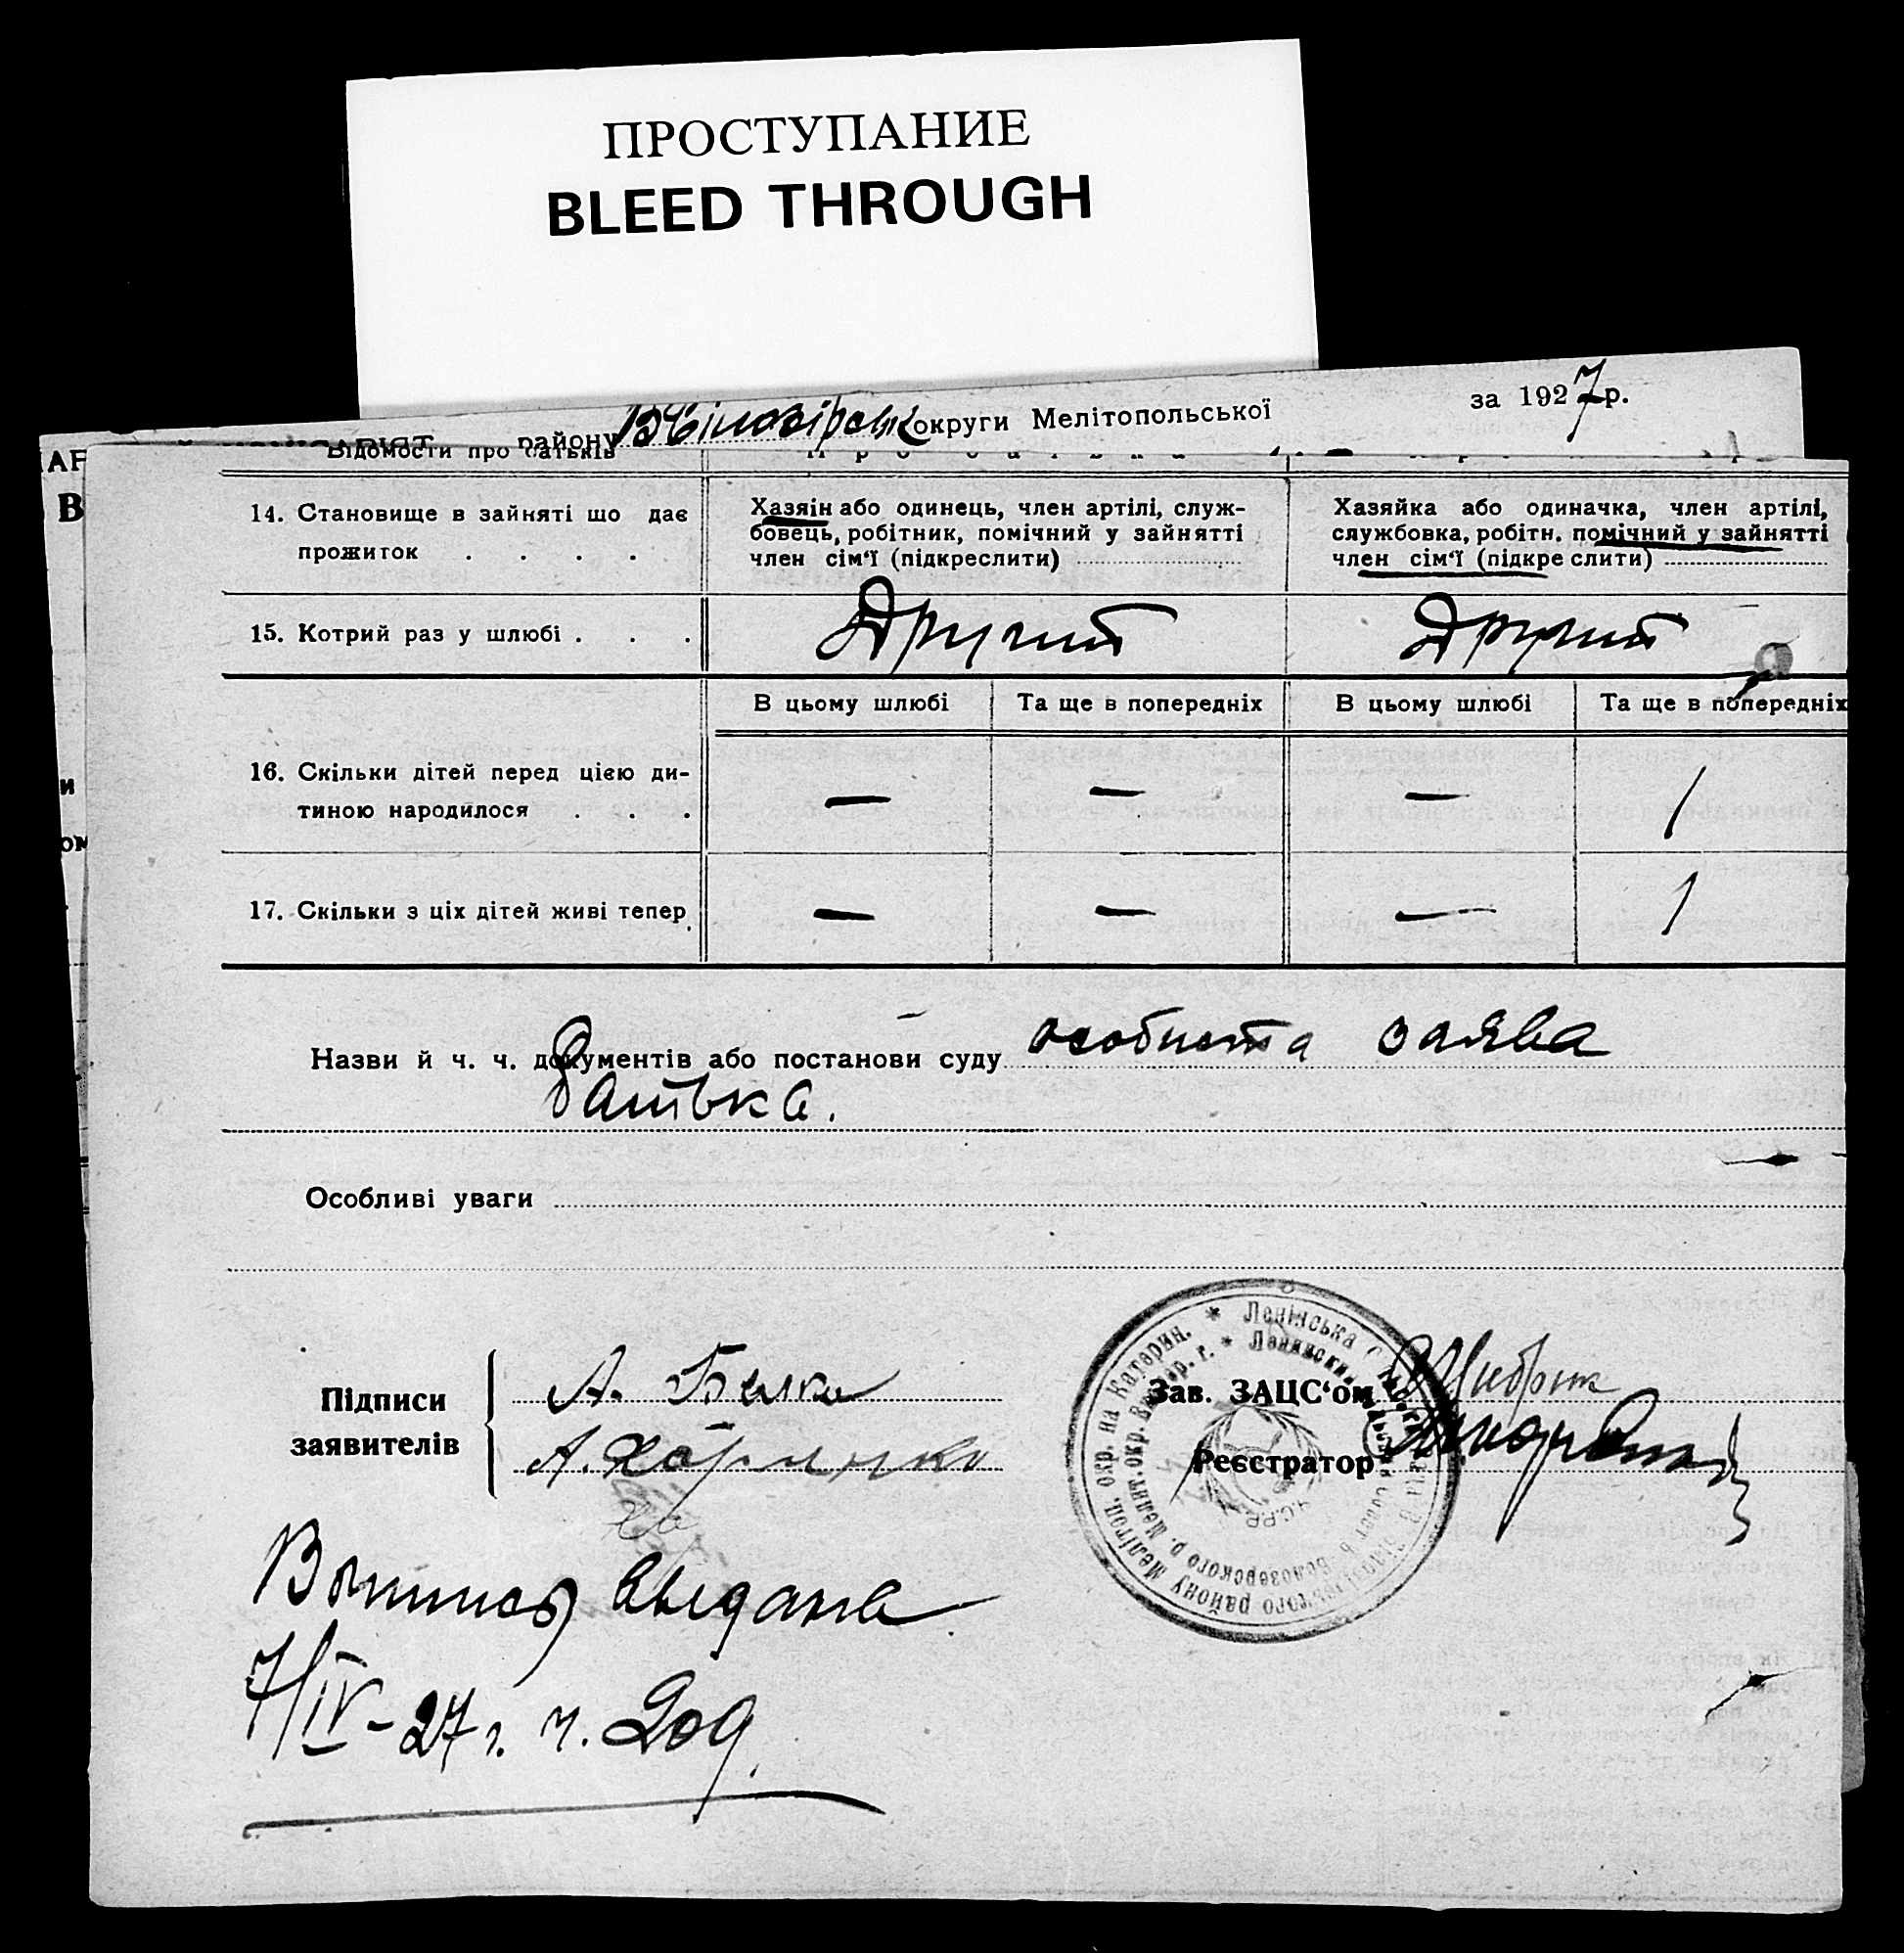 ПРОСТУПАНИЕ
BLEED THROUGH
району В Білозірськ округи Мелітопольської за 1927 р.
Відомости про батьків
14. Становище в зайняті що дає прожиток . . . .
Хазяін або одинець, член артілі, служ-
бовець, робітник, помічний у зайнятті
член сім‘ї (підкреслити)
Хазяйка або одиначка, член артілі,
службовка, робітн. помічний у зайнятті
член сім‘ї (підкреслити)
15. Котрий раз у шлюбі . . . Другий Другий
В цьому шлюбі Та ще в попередніх В цьому шлюбі Та ще в попередніх
16. Скільки дітей перед цією ди-
тиною народилося . . . — — — 1
17. Скільки з ціх дітей живі тепер — — — 1
Назви й ч. ч. документів або постанови суду особиста заява
батька.
Особливі уваги
Підписи
заявителів
А. Белик
А. Харченко
Зав. ЗАЦС‘ом
Реєстратор
Ленінська
Мелітоп. окр. на Катерин.
Выпись выдана
7/IV-27 г.